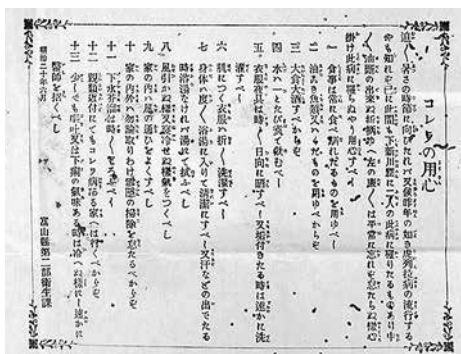 コレラの用心
追々暑さの時節に向ひたれバ又候昨年の如き虎列拉病の流行する
やも知れず已に此間も下新川郡に一人の此病に罹りたるものあり中々
油断の出来ぬ折柄ゆへ左の廉々は平常に忘れず怠たらぬ様心
掛け此病に罹らぬやう用心すべし
一 食事は常に食べ馴れたるものを用ゆべし
二 油あき魚類又ハくだものを用ゆべからず
三 大食大酒すべからず
四 水ハ一たび煮て飲むべし
五 衣服夜具は時々日向に晒すべし又垢付きたる時は速かに洗
濯すべし
六 肌につく衣服ハ折々洗濯すべし
七 身体ハ度々浴湯に入りて清潔にすべし又汗などの出でたる
時浴湯なければ湯にて拭ふべし
八 風引かぬ様又寝冷せぬ様氣をつくべし
九 家の内ハ風の通ひをよくすべし
十 家の内外ハ勿論取りわけ雪隠の掃除を怠たるべからず
十一 下水芥溜は時々さらふべし
十二 親類近付にてもコレラ病ある家へは行くべからず
十三 少しでも嘔吐又は下痢の氣味ある時は冷へぬ様に速かに
醫師を招くべし
明治二十年六月
富山縣第二部衛生課